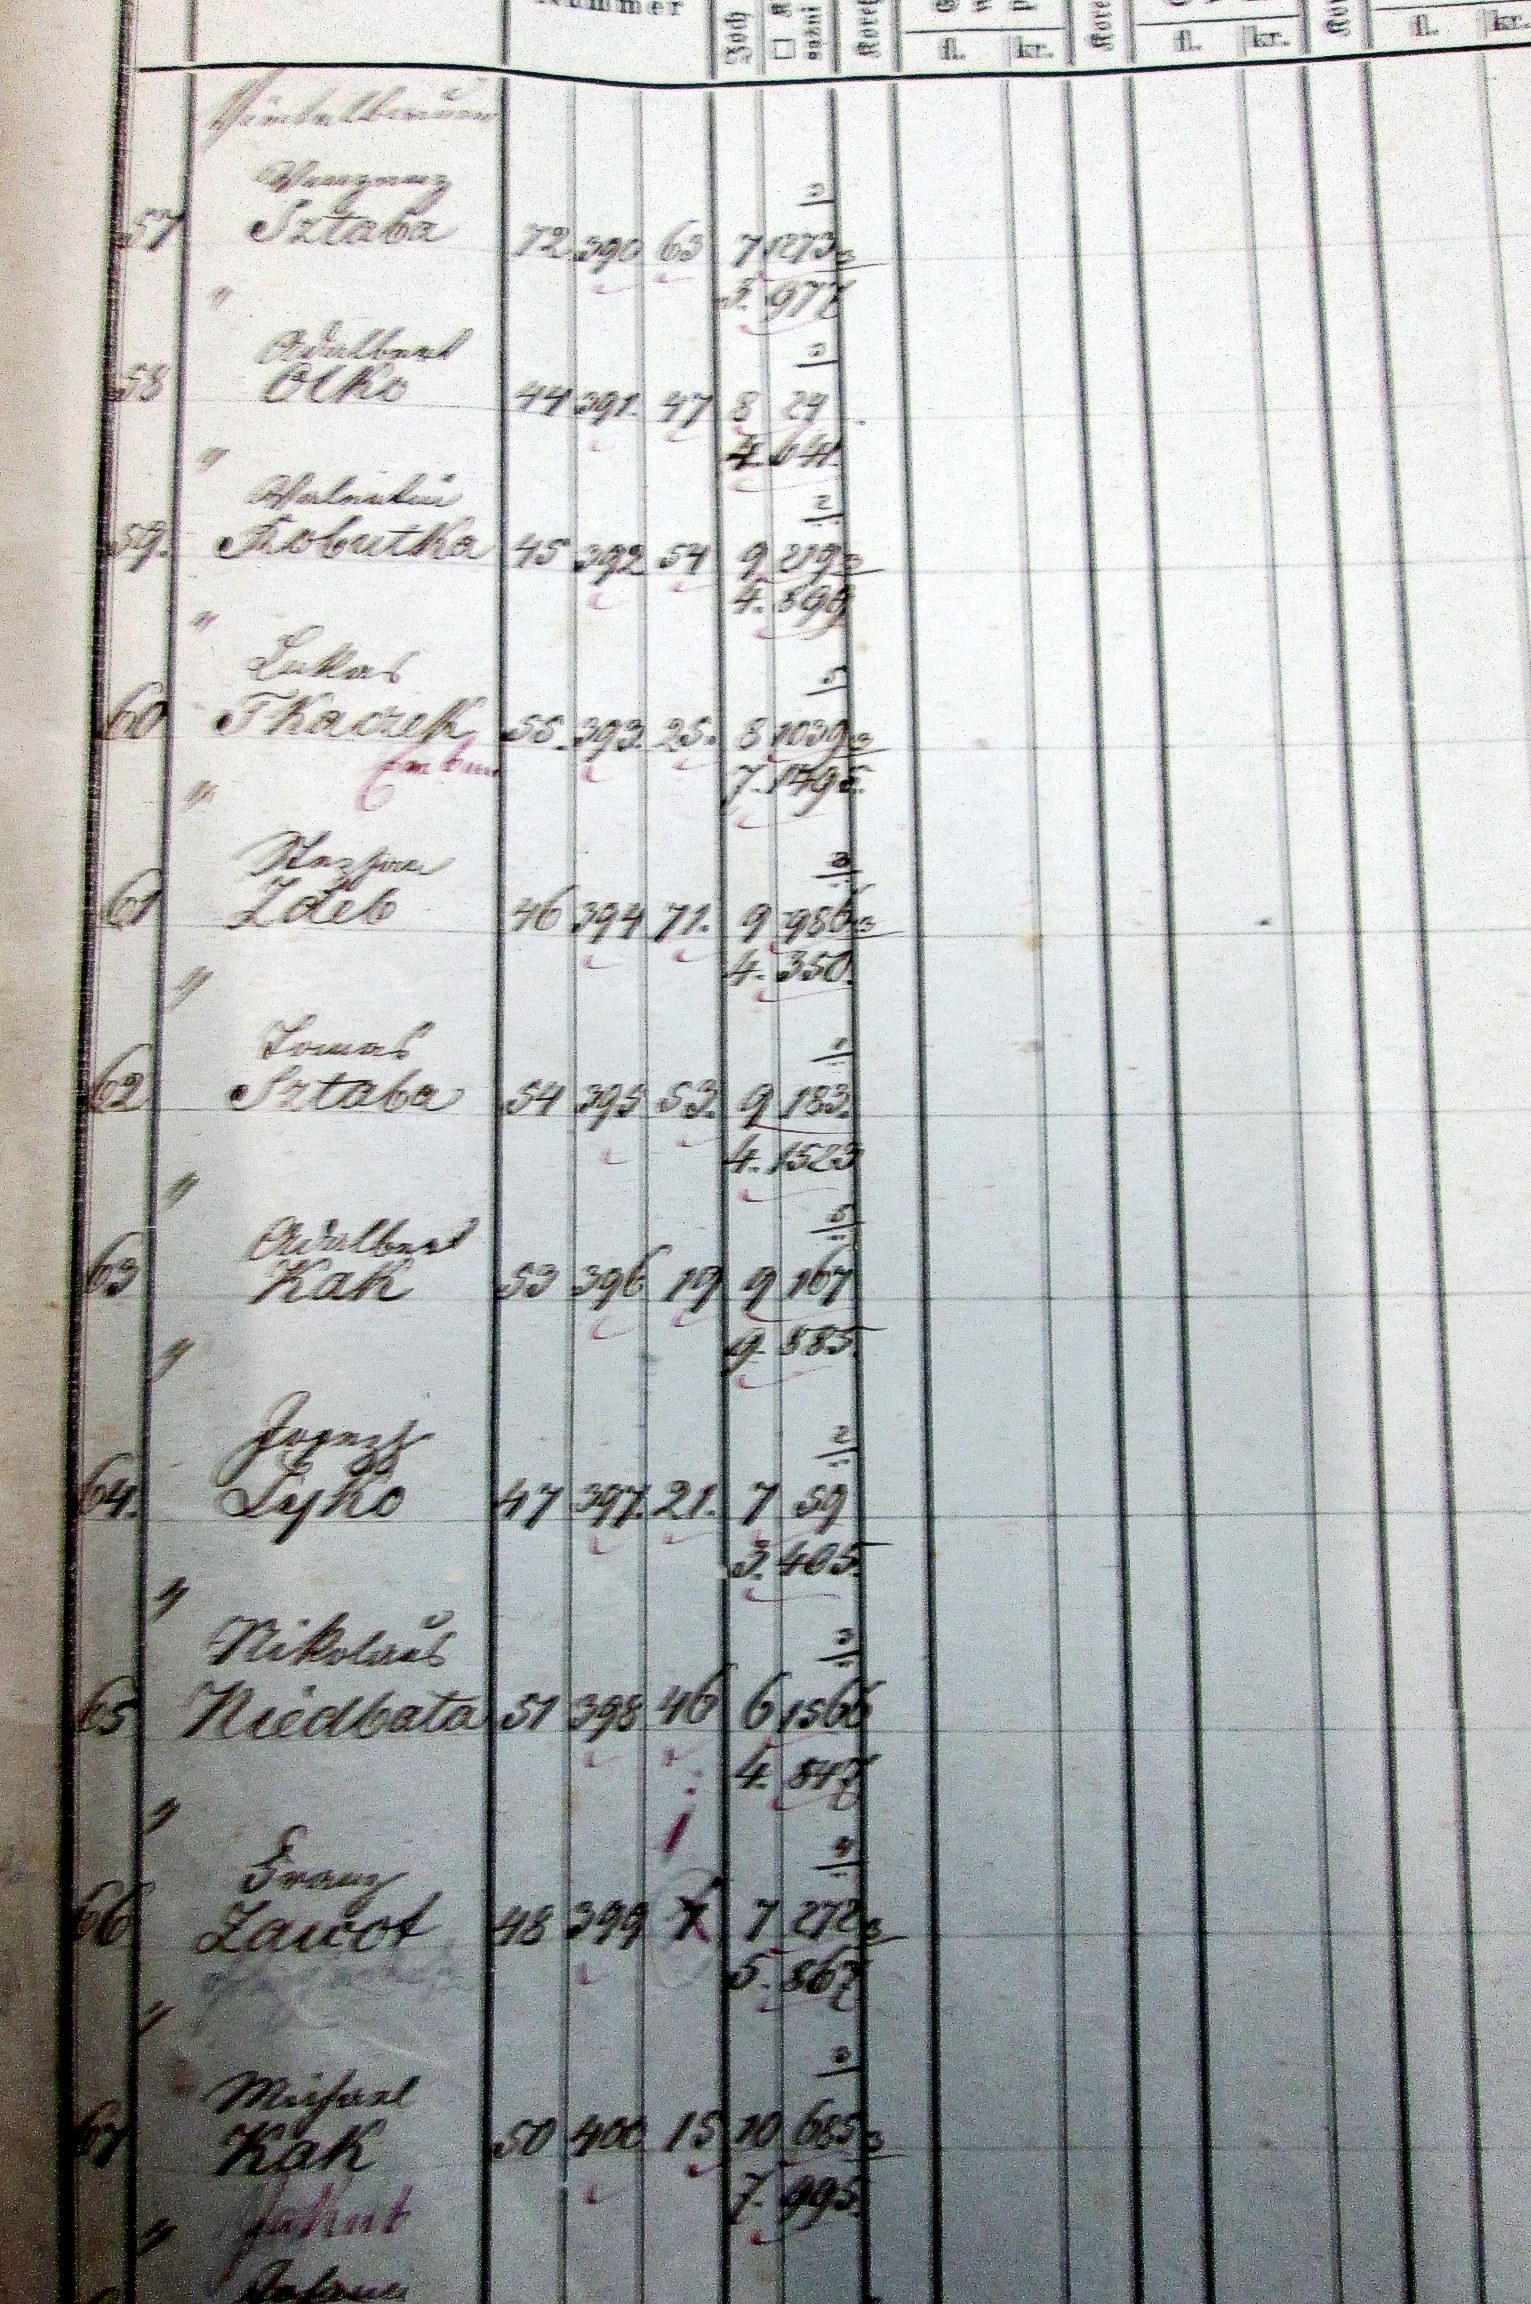 Nummer
Joch
fl. kr. fl. kr. fl. kr.
57 Sztaba 72 390 63 7 1273
" 3. 977
Adalbert
58 Olko 44 391. 47 8 24
" 4. 641.
Valentin
59. Kobutka 45 392 54 9 219
" 4. 898
Lukas
60 Tkaczek 55. 393. 25. 8 1039
" 7. 1495.
Stephan
61 Zdeb 46 394 71. 9 986
" 4. 350.
Tomas
62 Sztaba 54 395 53. 9 183.
" 4. 1523
Adalbert
63 Kak 53 396 19 9 167
" 9. 885.
Joseph
64. Łyko 47 397. 21. 7 59
" 3. 405.
Nikolaus
65 Niedbała 51 398 46 6 1566
" 4. 847
1
Franz
66 Zawoł 48 399 7 272
" 5. 867
Michael
67 Kak 50 400 15 10 685
" 7. 995.
Johann